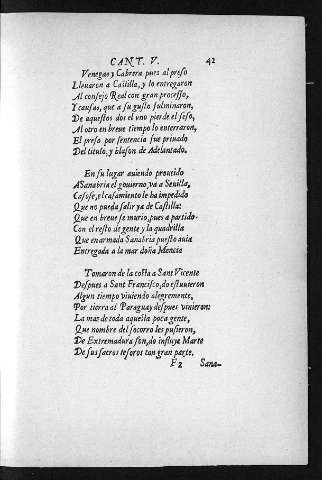 CANT. V. 42
Venegas y Cabrera pues al preso
Lleuaron a Castilla, y lo entregaron
Al consejo Real con gran processo,
Y causas, que a su gusto fulminaron,
De aquestos dos el vno pierde el seso,
Al otro en breue tiempo lo enterraron,
El preso por sentencia fue priuado
Del titulo, y blason de Adelantado.
En su lugar auiendo proueido
A Sanabria el gouierno, ya a Seuilla,
Casose, el casamiento le ha impedido
Que no pueda salir ya de Castilla:
Que en breue se murio, pues a partido
Con el resto de gente y la quadrilla
Que en armada Sanabria puesto auia
Entregada a la mar doña Mencia
Tomaron de la costa a Sant Vicente
Despues a Sant Francisco, do estuuieron
Algun tiempo viuiendo alegremente,
Por tierra al Paraguay despues vinieron:
La mas de toda aquesta poca gente,
Que nombre del socorro les pusieron,
De Extremadura son, do influye Marte
De sus sacros tesoros tan gran parte.
F 2 Sana-